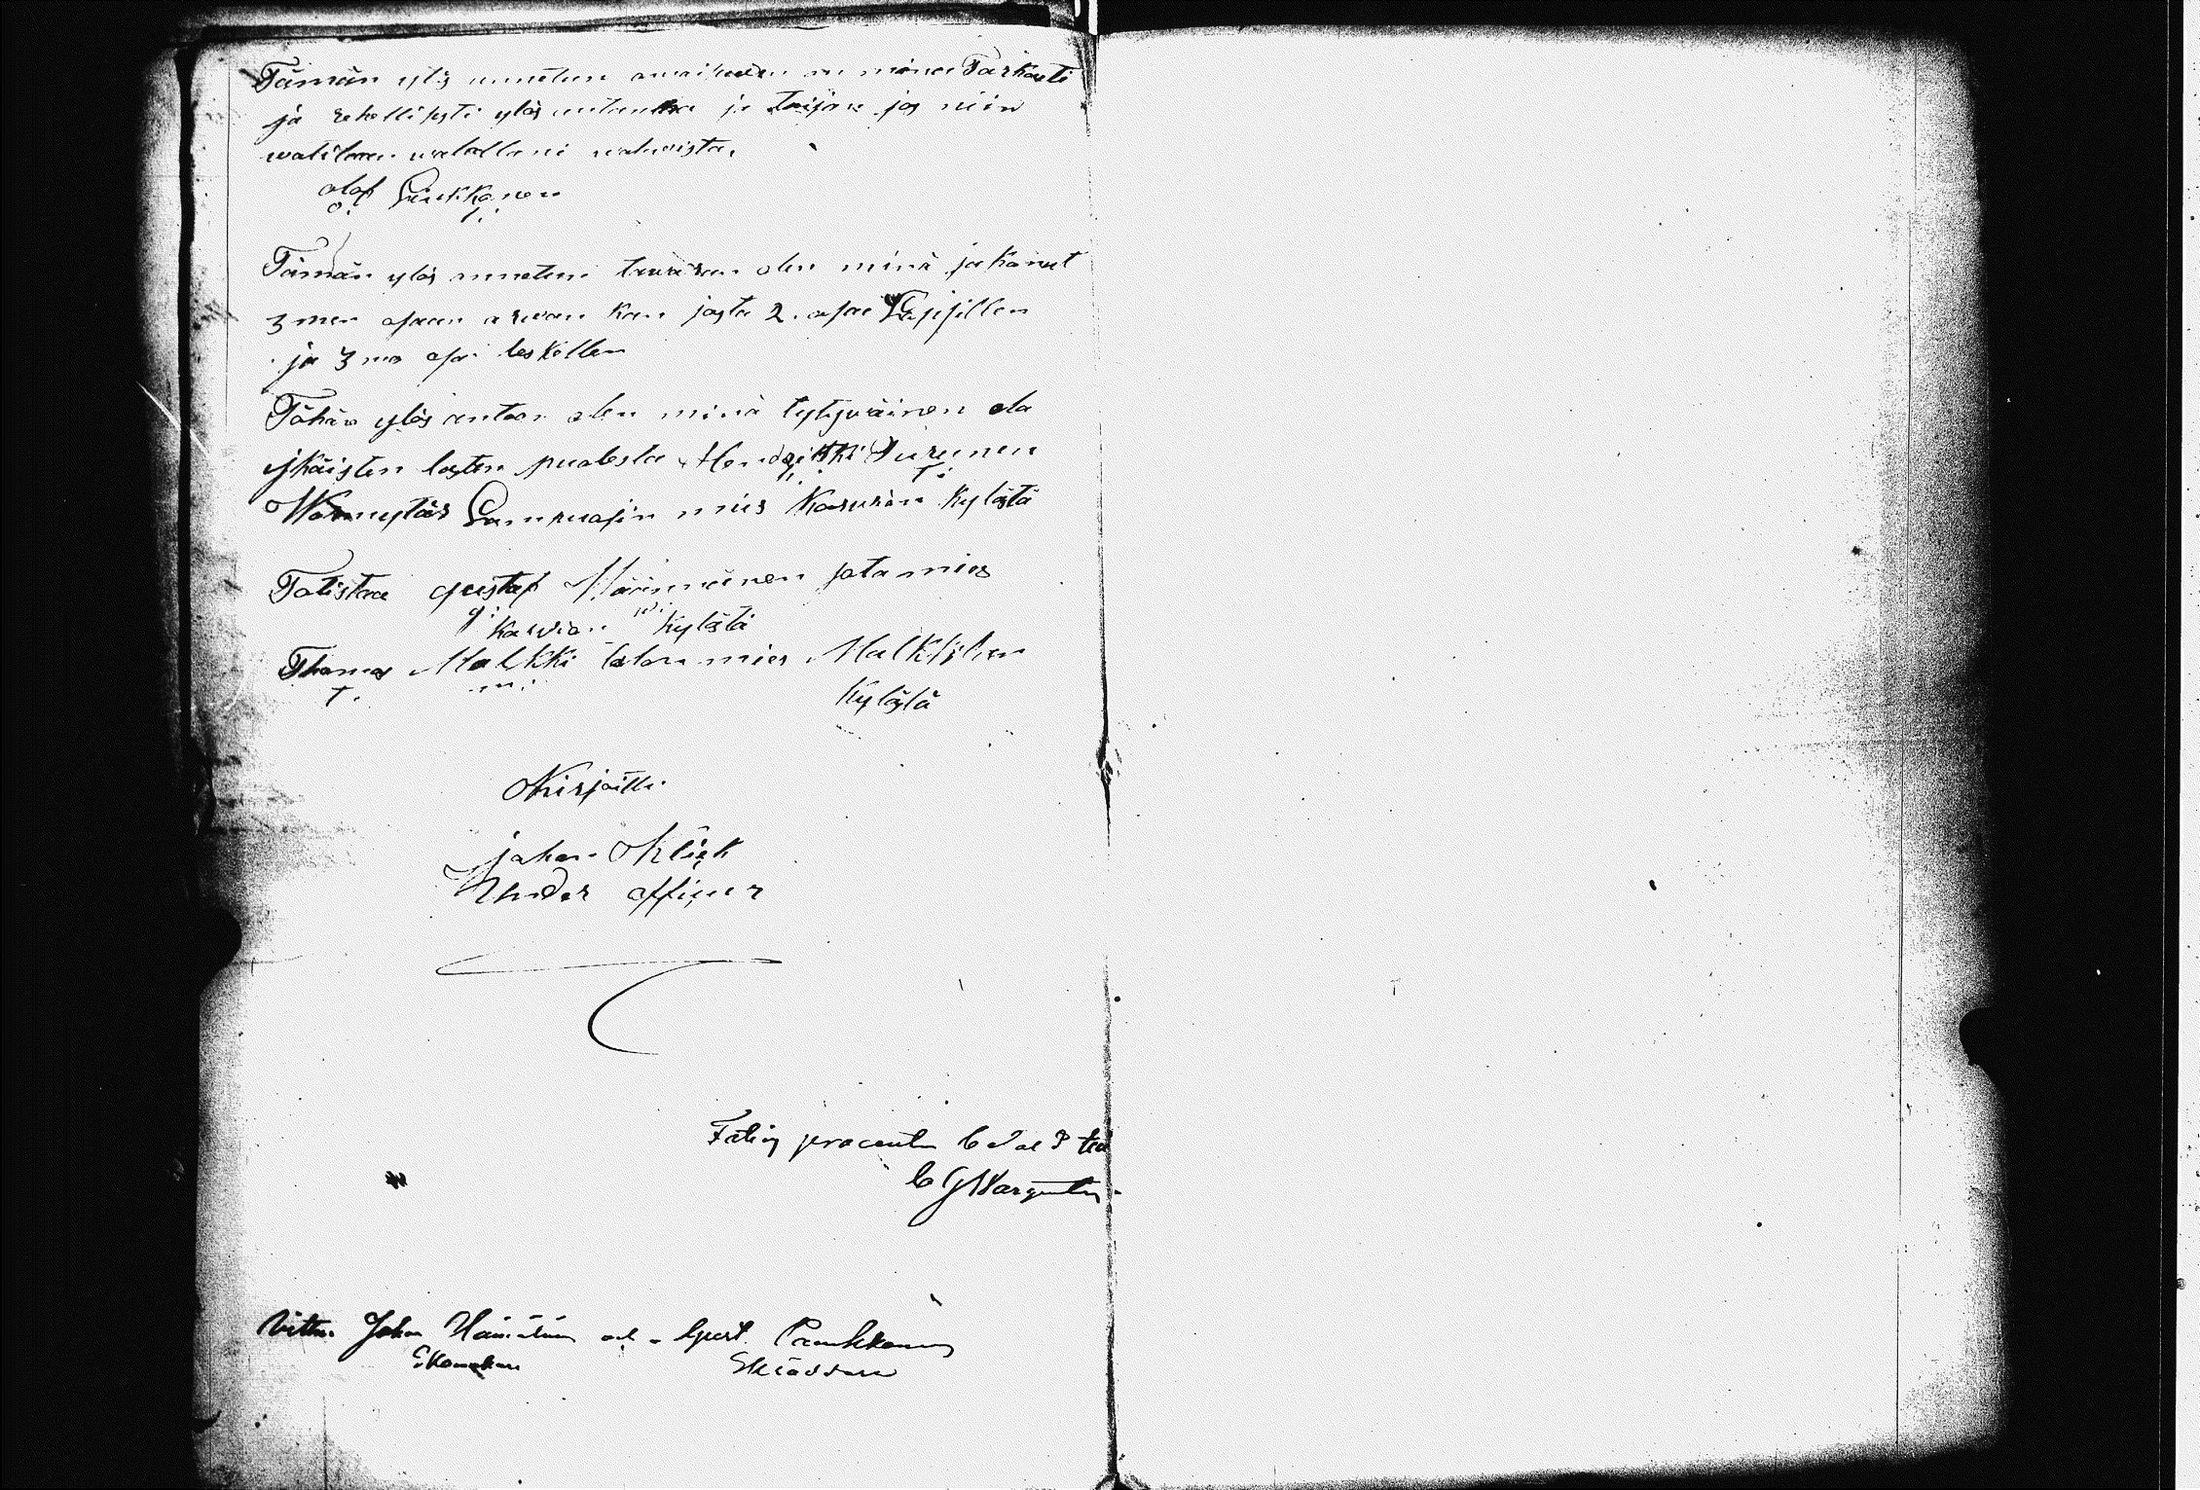 Tämän ylös annetun omaisuden on minä Tarkasti
ja rehellisesti ylös antanna ja taijan jos niin
waliloan walallani wahwista,
olof Pirkkonen
o. P.
Tämän ylös annetun tawaran olen minä jakanut
3 men osaan arwan kan josta 2. osaa Lapsillen
ja 3 mas osa leskellen
Tähän ylös antoon olen minä tytywäinen ala
jkäisten lasten puolesta Hendrikki Turunen
H. T.
Lampuojin mies Karwian kylästä
Todistaa gustaf Männinen jotamies
g. m.
Karwian kylästä
Thomas Malkki talon mies Malkkilan
T. m.
kylästä
Kirjoitti
johan Klick
Under officer
Fattig procenten betald ted
C G Wargentin
Vittna Johan Hämäläinen och Gust. Paukkonen